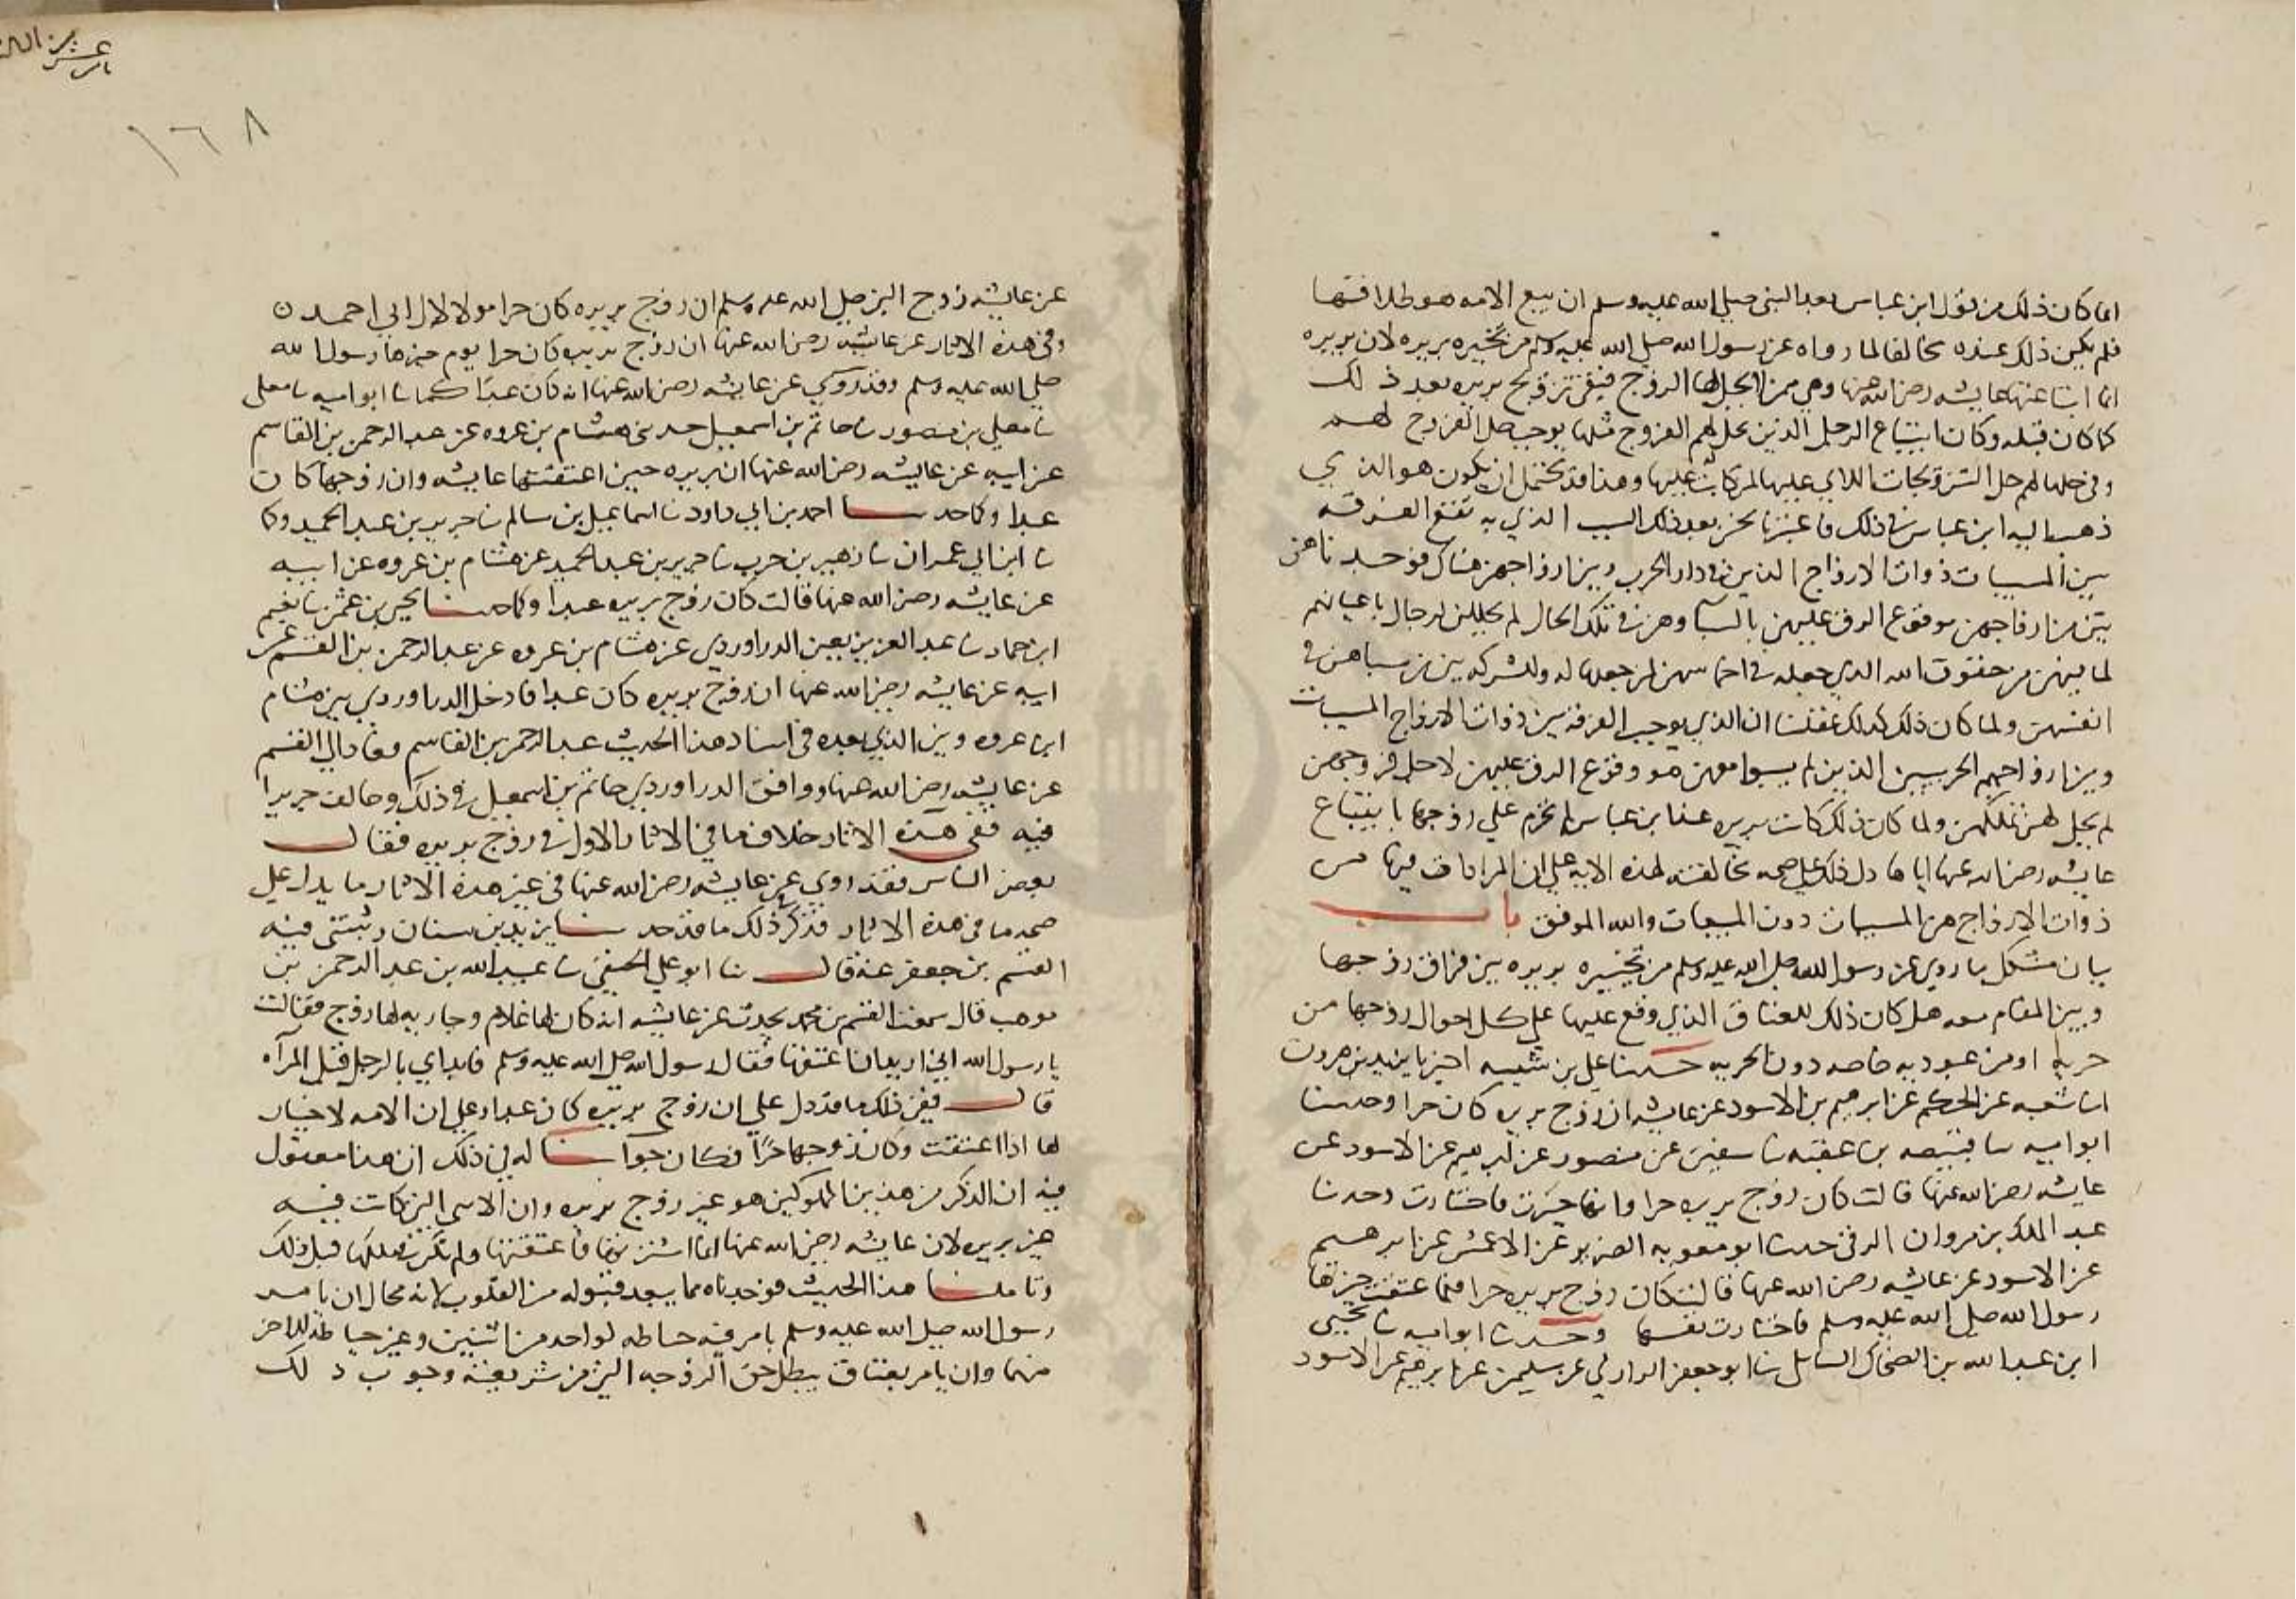 انما كان ذلك من قول ابن عباس بعد النبي صلي الله عليه وسلم ان بيع الامه هو طلاقها
فلم يكن ذلك عنده مخالفا لما رواه عن رسول الله صلي الله عليه وسلم من تخييره بريره لان بريره
انما ابتاعتها عايشه رضي الله عنها وهي ممن لا يحل لها الزوج فبقي تزويج بريره بعد ذلك
كما كان قبله وكان ابتياع الرجل الذين يحل لهم الفروج مثلها يوجب حل الفروج لهم
وفي حلها لهم حل التزويجات اللاتي عليها لمن كانت عليها وهذا قد يحتمل ان يكون هو الذي
ذهب اليه ابن عباس في ذلك فاعتبرنا نحن بعد ذلك السبب الذي به تقع الفرقه
بين المسبيات ذوات الازواج الذين في دار الحرب وبين ازواجهن هناك فوجدناهن
يبن من ازواجهن بوقوع الرق عليهن بالسبا وهن في تلك الحال لم يحللن لرجال باعيانهم
لما فيهن من حقوق الله الذي جعله في اخماسهن لمن جعلها له ولشركه بين من سباهن في
انفسهن ولما كان ذلك كذلك عقلنا ان الذي يوجب الفرقه بين ذوات الازواج المسبيات
وبين ازواجهم الحربيين الذين لم يسبوا معهن هو وقوع الرق عليهن لا حل فروجهن
لم يحل لهن تملكهن ولما كان ذلك كانت بريره عند ابن عباس لم تحرم علي زوجها بابتياع
عايشه رضي الله عنها اياها دل ذلك علي صحه مخالفته لهذه الايه علي ان المرادات فيها من
ذوات الازواج هن المسبيات دون المبيعات والله الموفق باب
بيان مشكل ما روي عن رسول الله صلي الله عليه وسلم من تخييره بريره بين فراق زوجها
وبين المقام معه هل كان ذلك للعتاق الذي وقع عليها علي كل احوال زوجها من
حريه او من عبوديه خاصه دون الحريه حدثنا علي بن شيبه اخبرنا يزيد بن هرون
انا شعبه عن الحكم عن ابرهيم بن الاسود عن عايشه ان زوج بريره كان حرا وحدثنا
ابو اميه نا قبيصه بن عقبه نا سفين عن منصور عن ابرهيم عن الاسود عن
عايشه رضي الله عنها قالت كان زوج بريره حرا وانها خيرت فاختارت وحدثنا
عبد الملك بن مروان الرقي حدثنا ابو معويه الضرير عن الاعمش عن ابرهيم
عن الاسود عن عايشه رضي الله عنها قالت كان زوج بريره حرا فلما عتقت خيرها
رسول الله صلي الله عليه وسلم فاختارت نفسها وحدثنا ابو اميه نا يحيي
ابن عبد الله بن الضحاك البابلي نا ابو جعفر الرازي عن سليمن عن ابرهيم عن الاسود
١٦٨
عن عايشه زوج النبي صلي الله عليه وسلم ان زوج بريره كان حرا مولا لال ابي احمد ن
وفي هذه الاثار عن عايشه رضي الله عنها ان زوج بريره كان حرا يوم خيرها رسول الله
صلي الله عليه وسلم وقد روي عن عايشه رضي الله عنها انه كان عبدا كما نا ابو اميه نا معلي
نا معلي بن منصور نا حاتم بن اسمعيل حدثني هشام بن عروه عن عبد الرحمن بن القاسم
عن ابيه عن عايشه رضي الله عنها ان بريره حين اعتقتها عايشه وان زوجها كان
عبدا وكما حدثنا احمد بن ابي داود نا اسماعيل بن سالم نا جرير بن عبد الحميد وكا
نا ابن ابي عمران نا زهير بن حرب نا جرير بن عبد الحميد عن هشام بن عروه عن ابيه
عن عايشه رضي الله عنها قالت كان زوج بريره عبدا وكما حدثنا يحيي بن عثمن نا نعيم
ابن حماد نا عبد العزيز يعني الدراوردي عن هشام بن عروه عن عبد الرحمن بن القسم عن
ابيه عن عايشه رضي الله عنها ان زوج بريره كان عبدا فادخل الدراوردي بين هشام
ابن عروه وبين الذي بعده في اسناد هذا الحديث عبد الرحمن بن القاسم وعاد الي القسم
عن عايشه رضي الله عنها ووافق الدراوردي حاتم بن اسمعيل في ذلك وخالف جريرا
فيه ففي هذه الاثار خلاف ما في الاثار الاول في زوج بريره فقال
بعض الناس فقد روي عن عايشه رضي الله عنها في غير هذه الاثار ما يدل علي
صحه ما في هذه الاثار فذكر ذلك ما قد حدثنا يزيد بن سنان وثبتني فيه
القسم بن جعفر عنه قال نا ابو علي الحنفي نا عبيد الله بن عبد الرحمن بن
موهب قال سمعت القسم بن محمد يحدث عن عايشه انه كان لها غلام وجاريه لها زوج فقالت
يا رسول الله اني اريد ان اعتقها فقال رسول الله صلي الله عليه وسلم فابداي بالرجل قبل المرآه
قال ففي ذلك ما قد دل علي ان زوج بريره كان عبدا وعلي ان الامه لا خيار
لها اذا اعتقت وكان زوجها حرا فكان جوابنا له في ذلك ان هذا معقول
فيه ان الذكر من هذين المملوكين هو غير زوج بريره وان الانثي التي كانت فيه
هي غير بريره لان عايشه رضي الله عنها انما اشترتها فاعتقتها ولم تكن تملكها قبل ذلك
وتاملنا هذا الحديث فوجدناه مما يبعد قبوله من القلوب لانه محال ان يامر
رسول الله صلي الله عليه وسلم بامر فيه حياطه لواحد من اثنين وغير حياطه للاخر
منهما وان يامر بعتاق يبطل حق الزوجه التي من شريعته وجوب ذلك